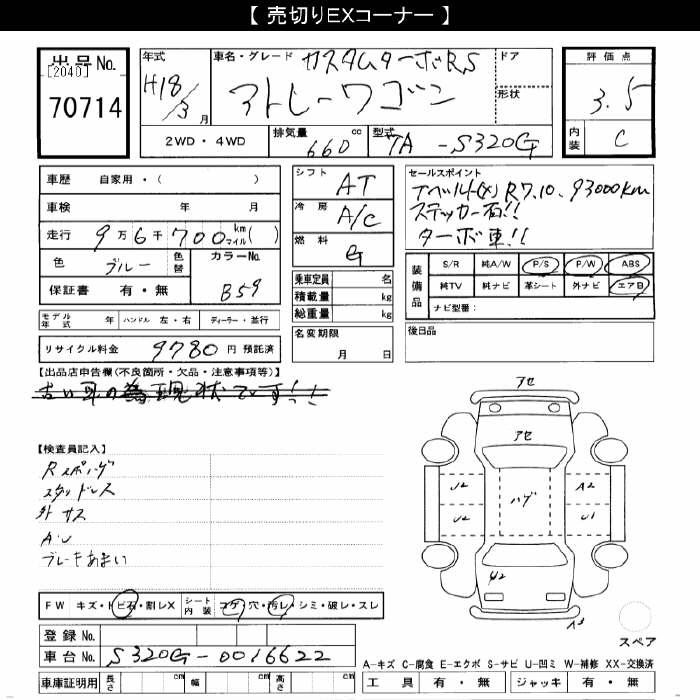 【 売切りEXコーナー 】
出品No.
[2040]
70714
年式
H18/3月
車名・グレード カスタムターボRS
アトレーワゴン
ドア
形状
評価点
3.5
内装
C
2WD・4WD
排気量 660 cc
型式 TA-S320G
車歴 自家用・( )
車検 年 月
走行 9万6千700 km マイル( )
色 ブルー
色替
カラーNo. B59
保証書 有・無
モデル年式 年 ハンドル 左・右 ディーラー・並行
リサイクル料金 9780 円 預託済
シフト AT
冷房 A/C
燃料 G
乗車定員 名
積載量 kg
総重量 kg
名変期限
月 日
セールスポイント
Tベルト(×) R7.10、93000km
ステッカー有!!
ターボ車!!
装備品
S/R 純A/W P/S P/W ABS
純TV 純ナビ 革シート 外ナビ エアB
ナビ型番:
後日品
【出品店申告欄(不良箇所・欠品・注意事項等)】
古い車の為現状です!!
【検査員記入】
Rスポハゲ
スタッドレス
外 サス
A・U
ブレーキあまい
アセ
アセ
ハゲ
U2
U2
A2
U1
U2
A3
スペア
FW キズ・トビ石・割レX
シート内装 コゲ・穴・汚レ・シミ・破レ・スレ
登録No.
車台No. S320G-0016622
車庫証明用 長さ cm 幅 cm 高さ cm
A−キズ C−腐食 E−エクボ S−サビ U−凹ミ W−補修 XX−交換済
工具 有・無 ジャッキ 有・無